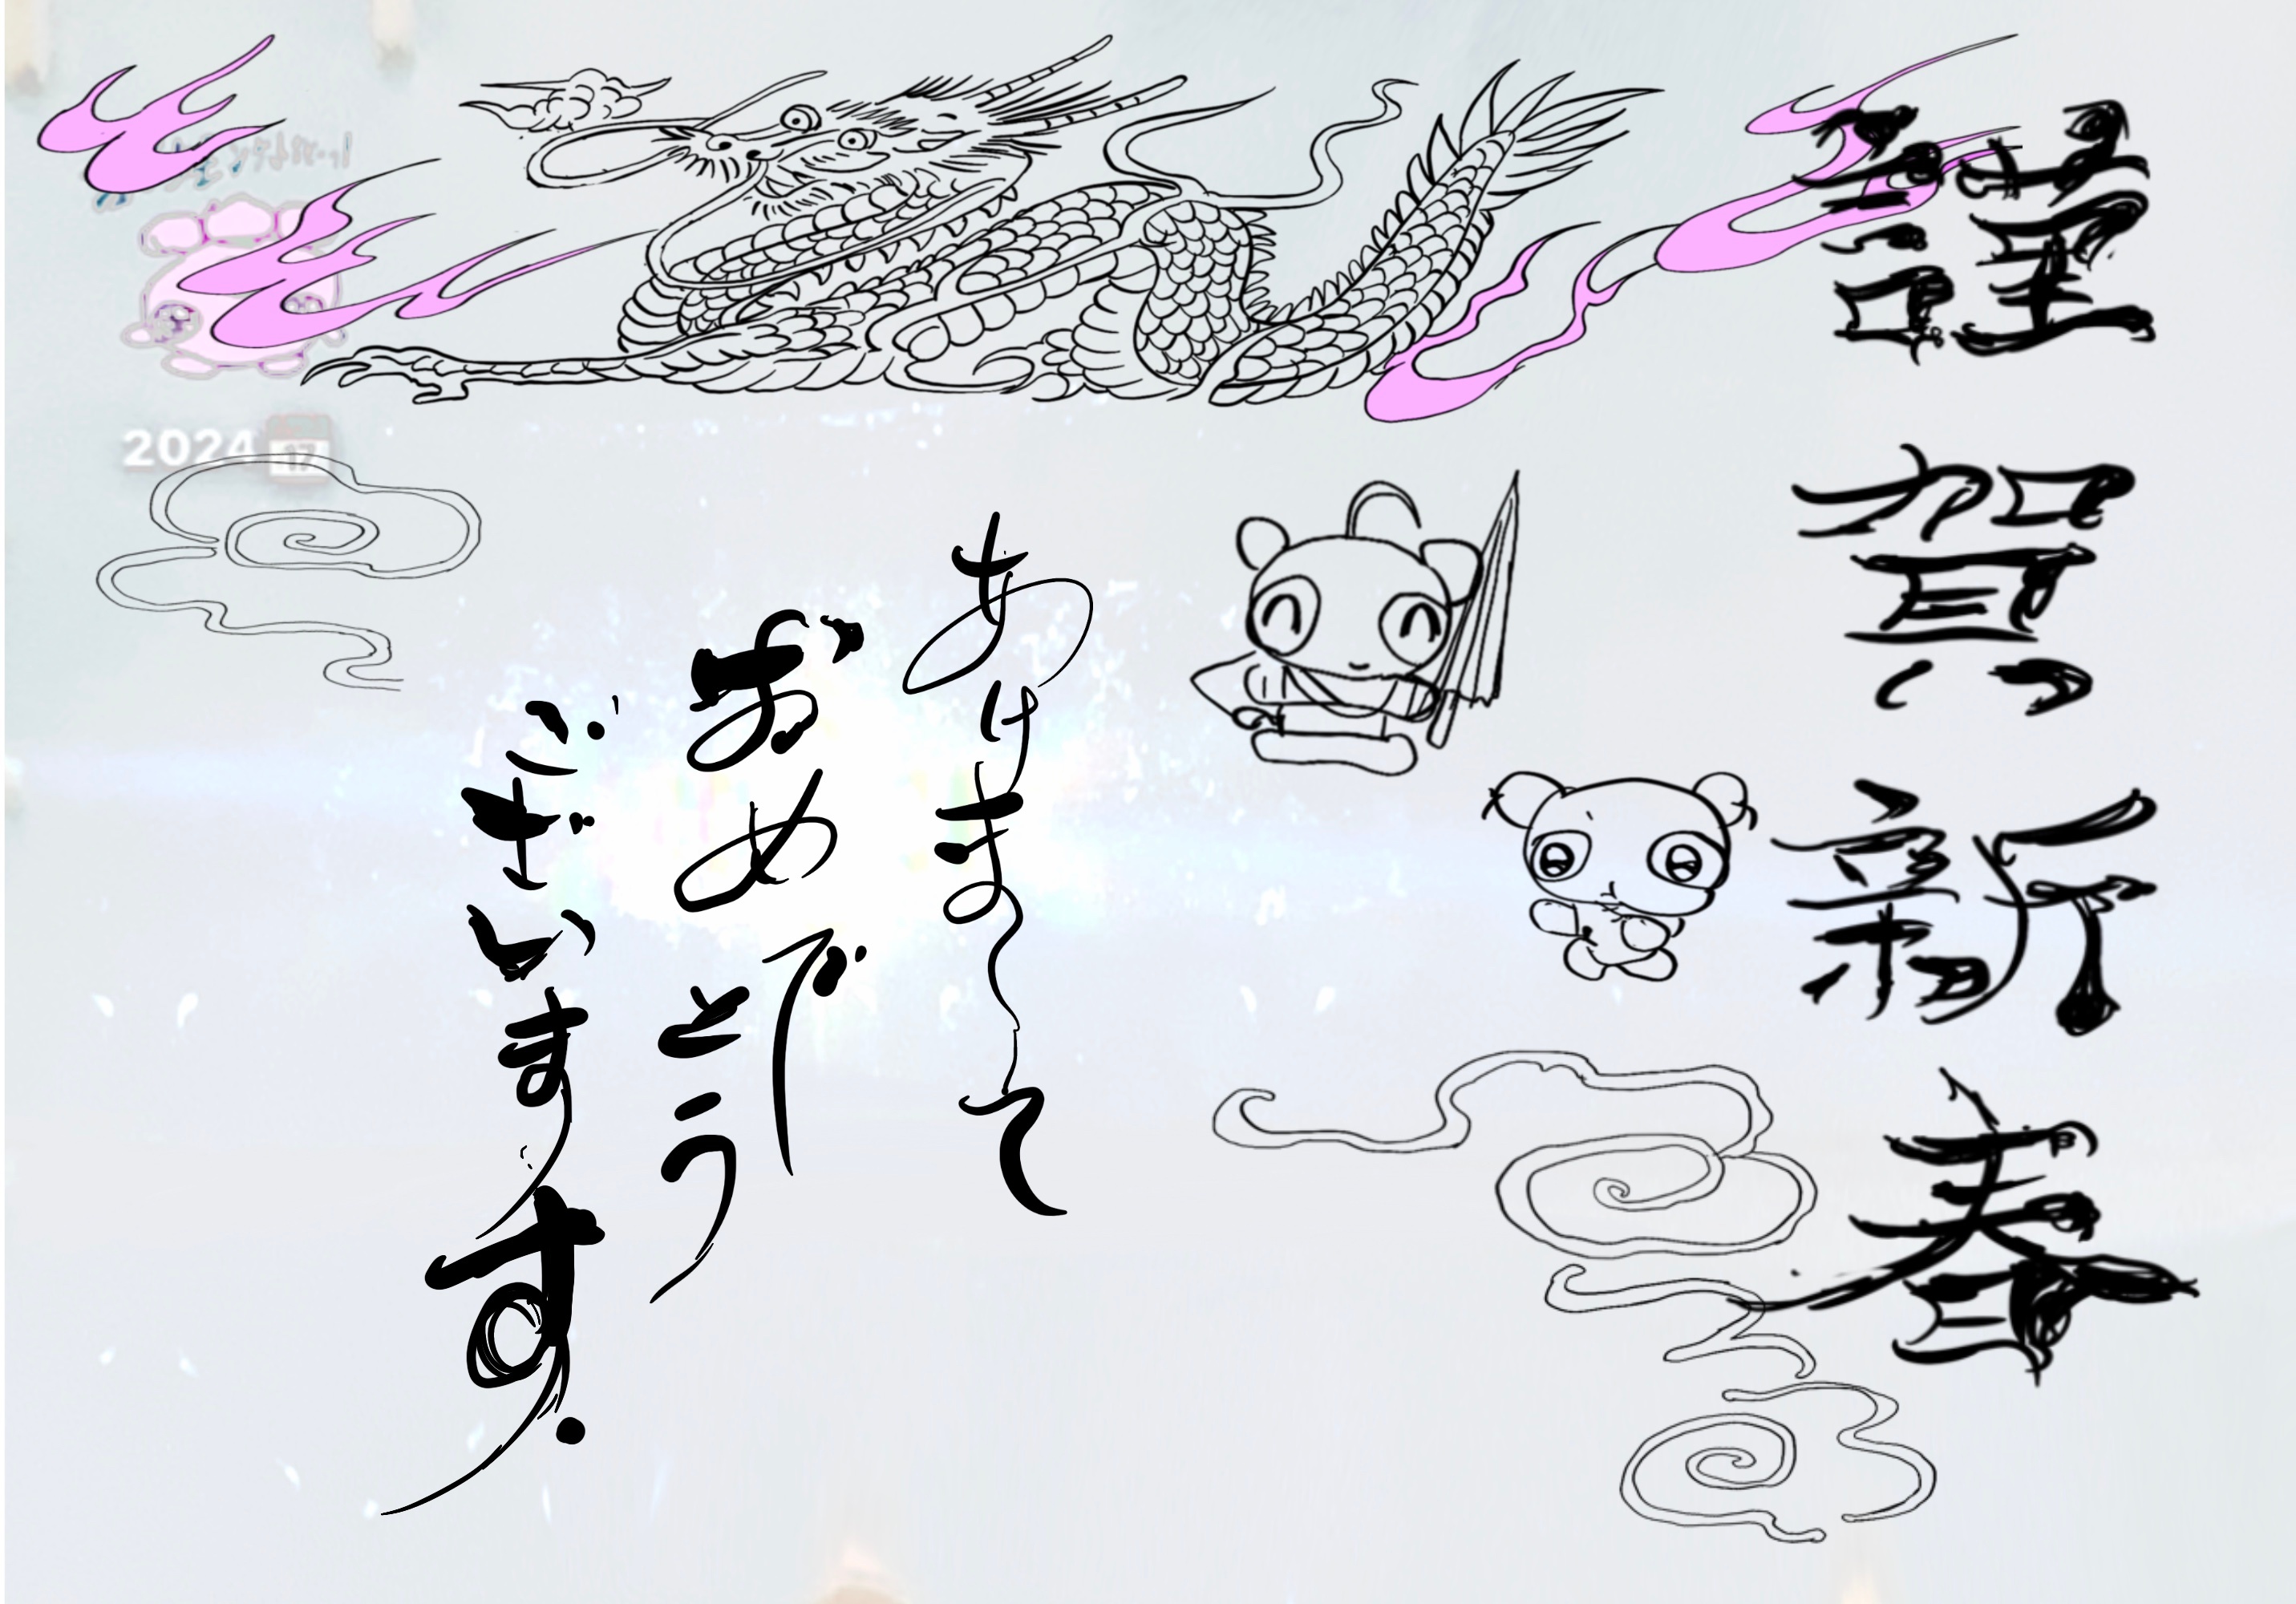 謹賀新春
あけまして
おめでとう
ございます
2024
17